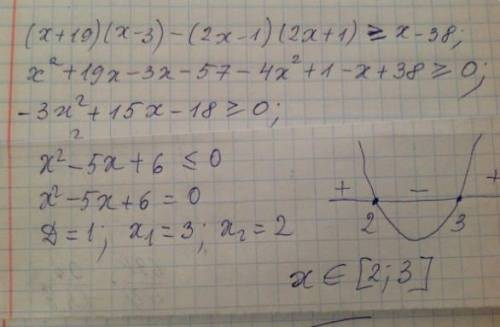 (x+19)(x-3)-(2x-1)(2x+1) ≥ x-38;
x²+19x-3x-57-4x²+1-x+38 ≥ 0;
-3x²+15x-18 ≥ 0;
2
x²-5x+6 ≤ 0
x²-5x+6 = 0
D=1; x₁=3; x₂=2
+ - +
2 3
x ∈ [2; 3]